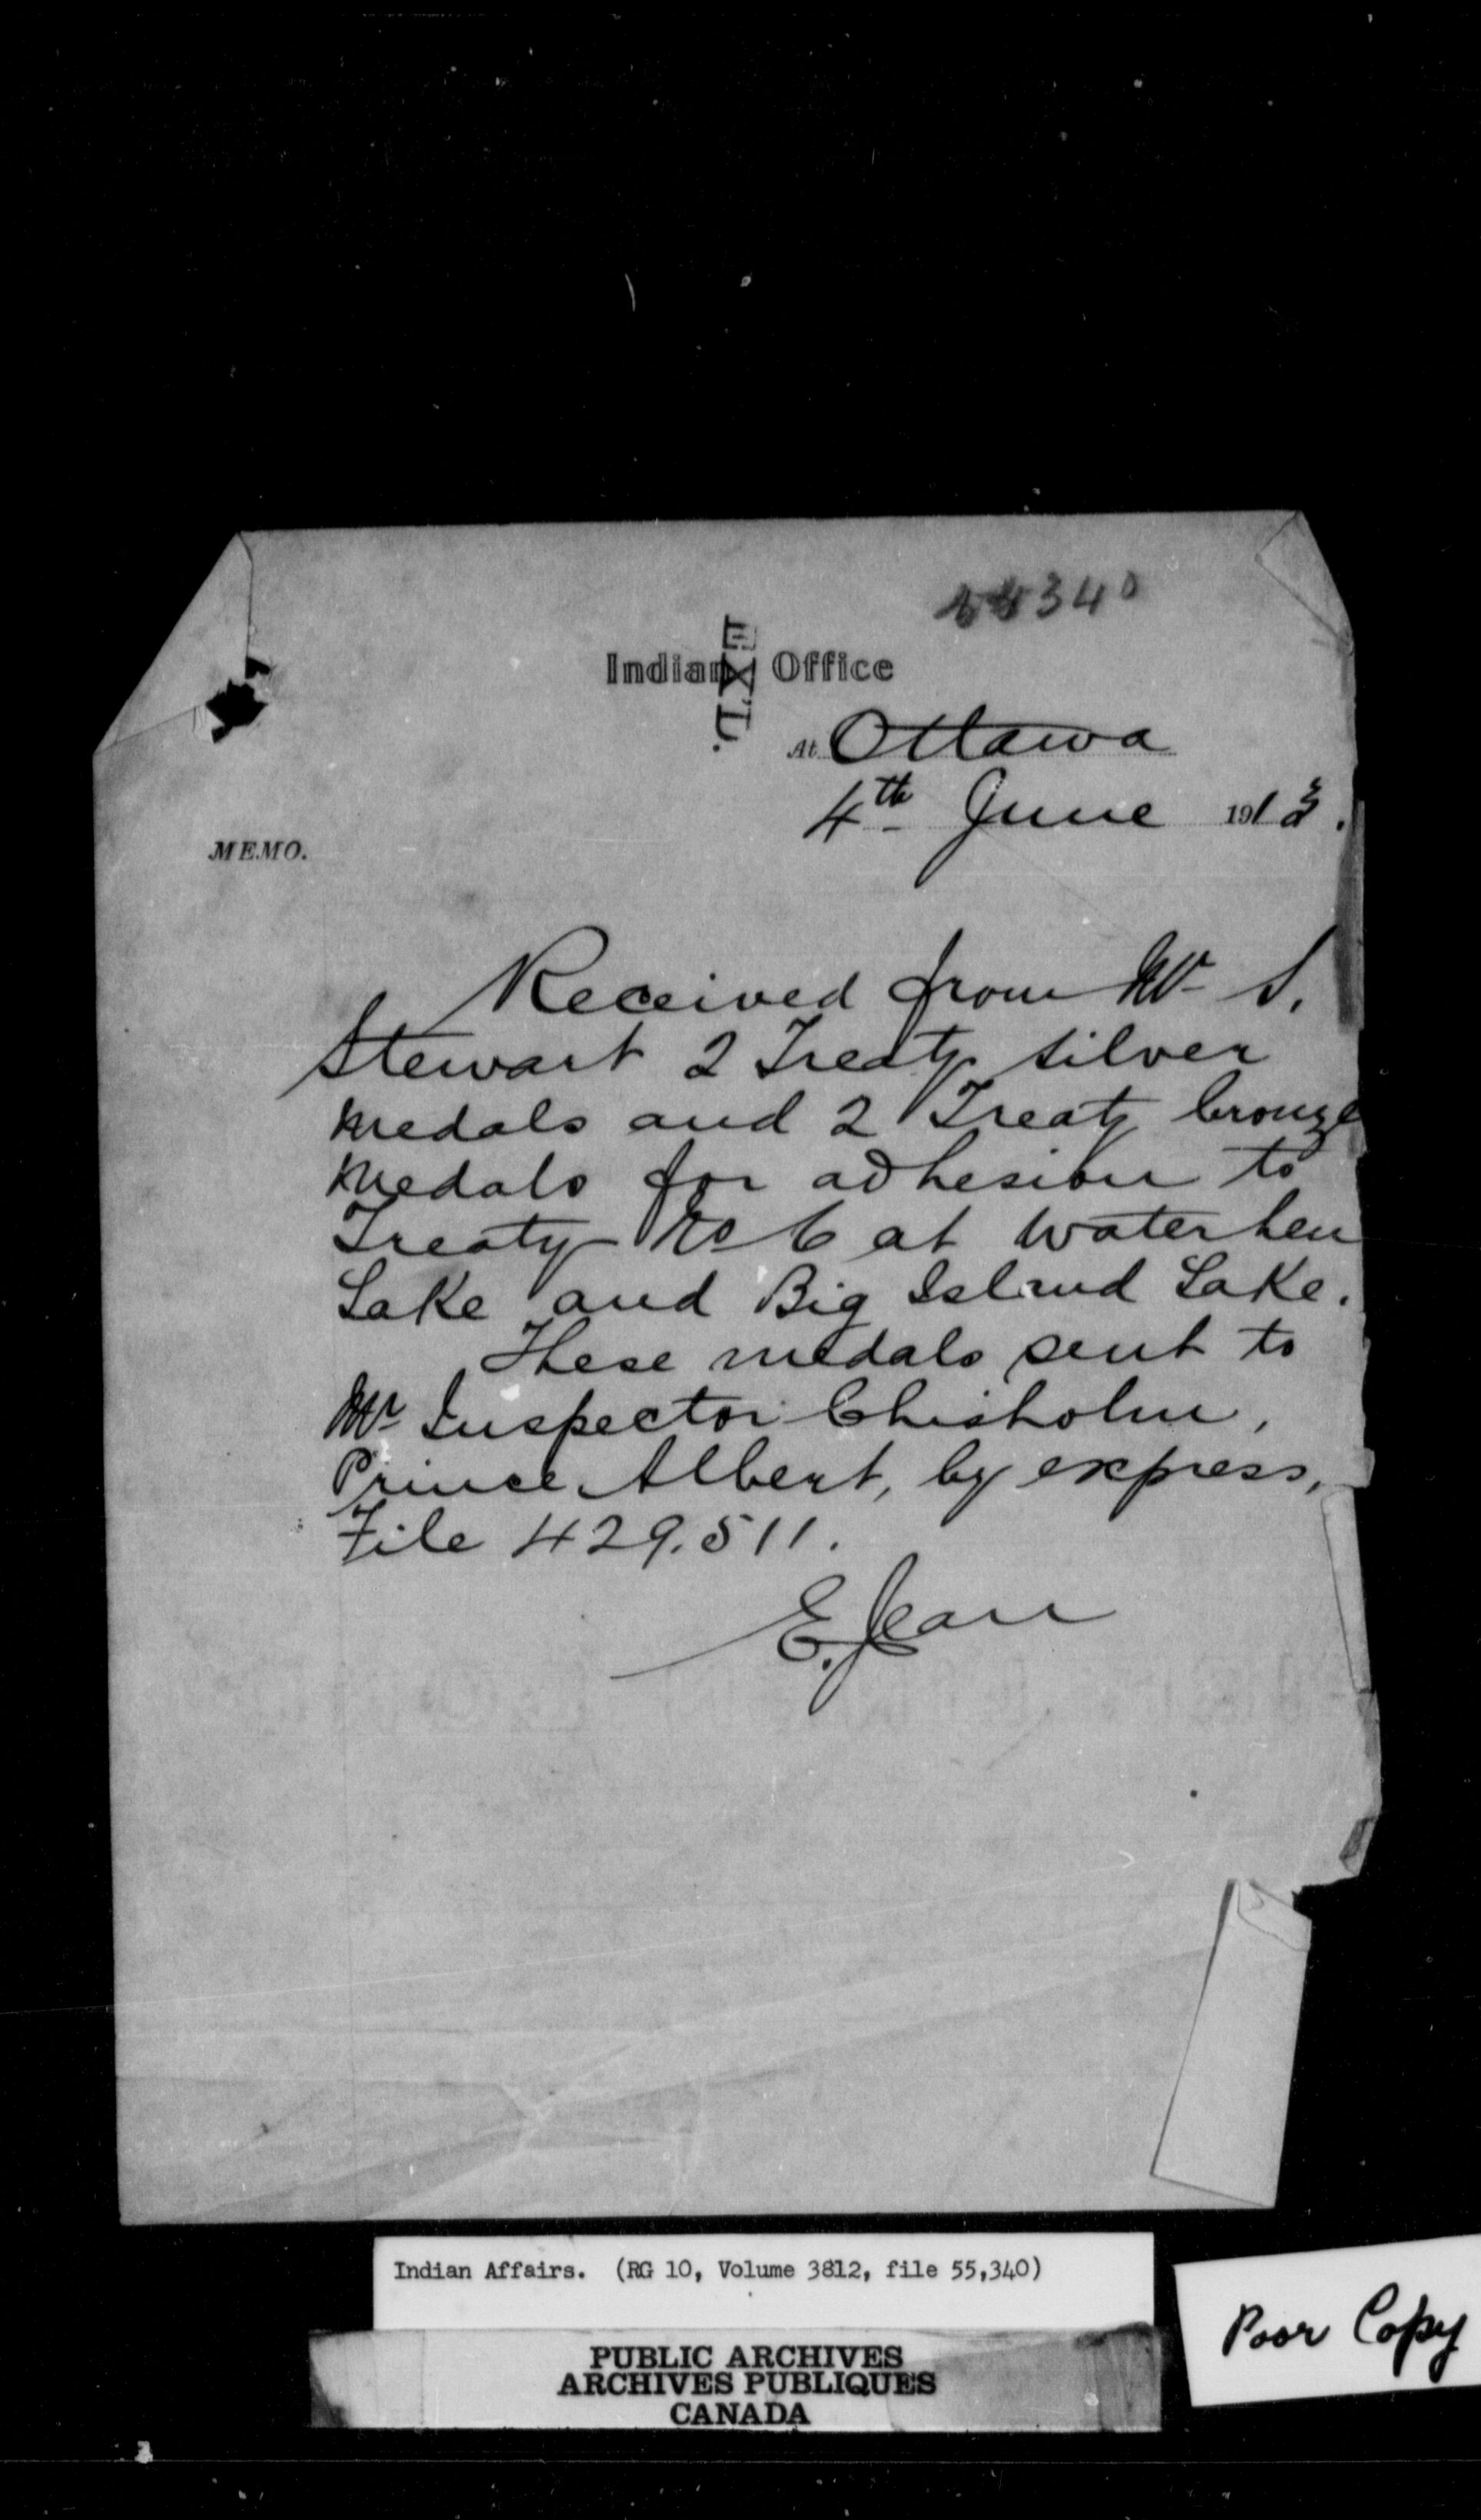 55340
EXT.
Indian Office
At Ottawa
4th June 1913.
MEMO.
Received from Mr S.
Stewart 2 Treaty silver
medals and 2 Treaty bronze
medals for adhesion to
Treaty No 6 at Waterhen
Lake and Big Island Lake.
These medals sent to
Mr Inspector Chisholm,
Prince Albert, by express,
File 429.511.
E. Jean
Indian Affairs. (RG 10, Volume 3812, file 55,340)
Poor Copy
PUBLIC ARCHIVES
ARCHIVES PUBLIQUES
CANADA